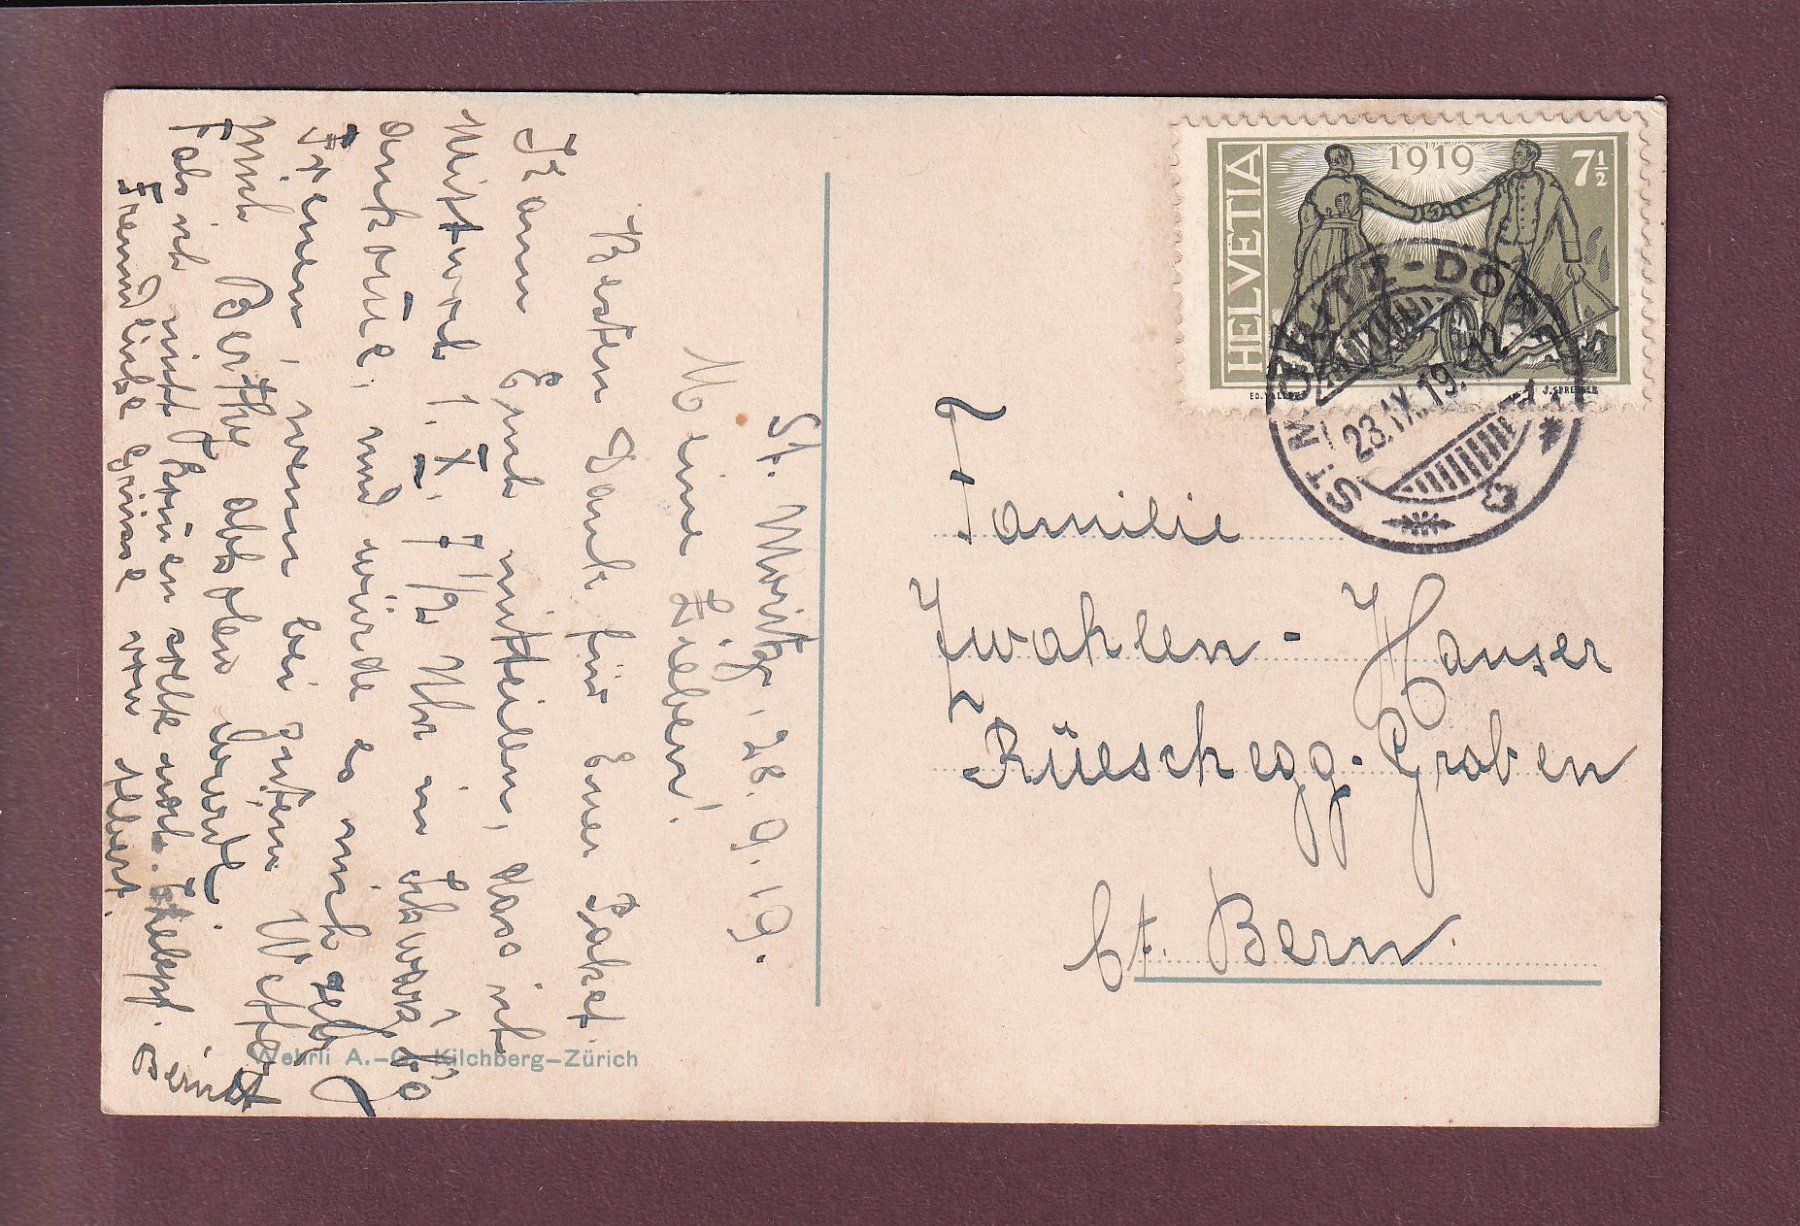 St. Moritz, 28. 9. 19.
Meine Lieben!
Besten Dank für Euer Paket.
Kann Euch mitteilen, dass ich
Mittwoch 1. X. 7 1/2 Uhr in Schwarzbg
ankome, und würde es mich sehr
freuen, wenn bei gutem Wetter
mich Berthy abholen würde.
Falls ich nicht komen sollte noch Bericht
Freundliche Grüsse von Albert.
Wehrli A.-G. Kilchberg-Zürich
HELVETIA
1919
7½
J. SPRENGER
ST. MORITZ-DORF
23.IX.19. 12
Familie
Zwahlen - Hauser
Rüeschegg-Graben
Ct. Bern.